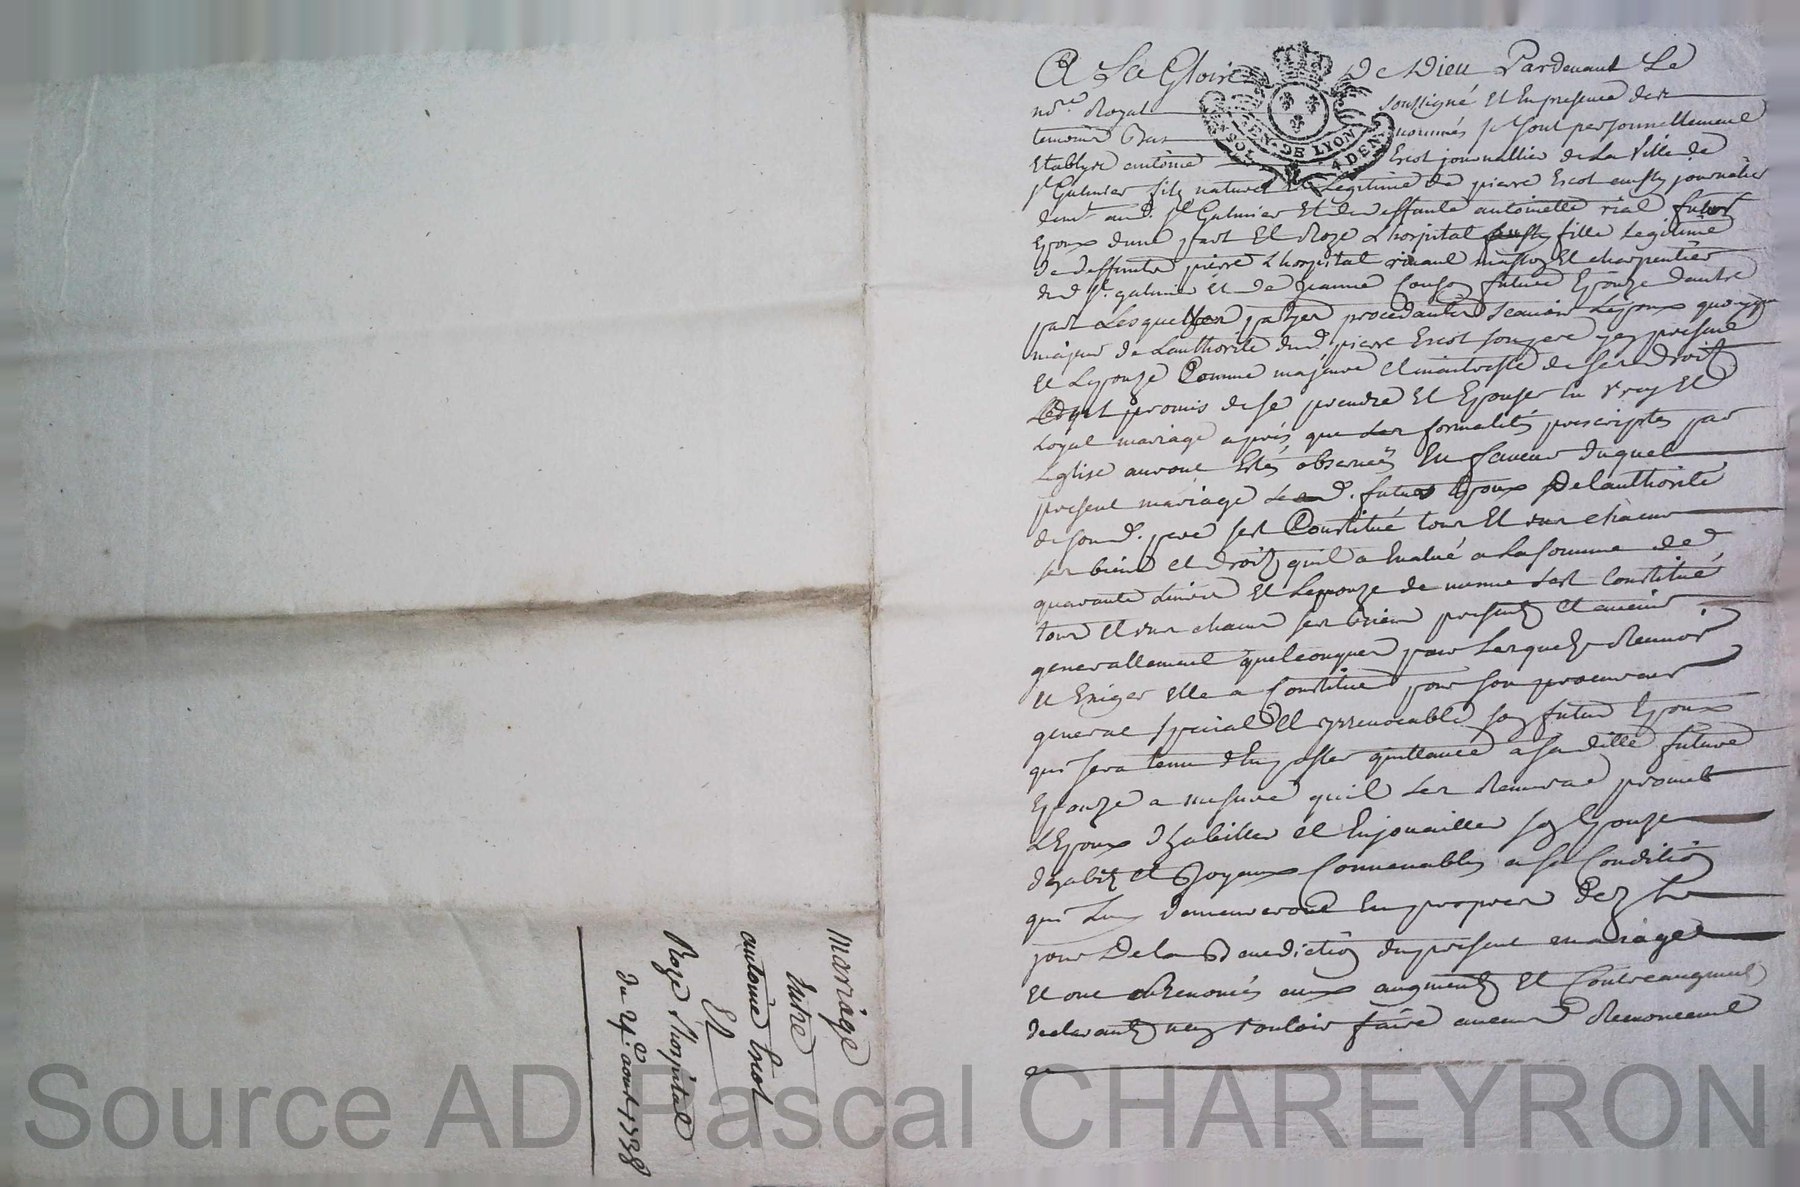 A La Gloire de Dieu Pardevant Le
no.re Royal soussigné Et En presence des
temoins Bas nommés se sont personnellement
Etablys antoine Escot journallier de La Ville de
st Galmier fils naturel et Legitime de pierre Escot aussy journalier
demt aud. st Galmier Et de deffunte antoinette rial futur
Epoux dune part Et Roze Lhospital fille Legitime
de deffunts pierre Lhospital vivant masson Et charpentier
dud st galmier Et de Jeanne future Epouze dautre
part Lesquelles partyes procedantes Scavoir Lepoux quoyque
majeur de Lauthorité dud. pierre Escot son pere ycy present
Et Lepouze Comme majeure et maitresse de ses droits
ont promis de se prendre Et Epouser En Vray Et
Loyal mariage apres que Les formalités prescriptes par
Leglise auront Estés observées En faveur duquel
present mariage Led. futur Epoux De Lauthorité
de sond. pere sest Constitué tous Et uns chacuns
ses biens et droits quil a Evalué a La somme de
quarante Livres Et Lepouze de meme sest Constitué
tous et uns chacuns ses biens presents et avenir
generallement quelconques pour Lesquels Recevoir
et Exiger Elle a Constitué pour son procureur
general special Et yrrevocable son futur Epoux
qui sera tenu d'En passer quittance a sa ditte future
Epouze a mesure quil Les Recevra promet
LEpoux dhabiller et Enjouailler son Epouze
dhabits et Joyaux Convenables a sa Condition
qui Luy demeureront En propres Dez Le
jour De la Benediction du present mariage
Et ont Renoncés aux augments Et Contreaugment
declarants ny Vouloir faire aucuns Renoncent
GEN. DE LYON
SOL
4 DEN.
mariage
Entre
antoine Escot
Et
Roze Lhospital
du aout 1738
Source AD Pascal CHAREYRON